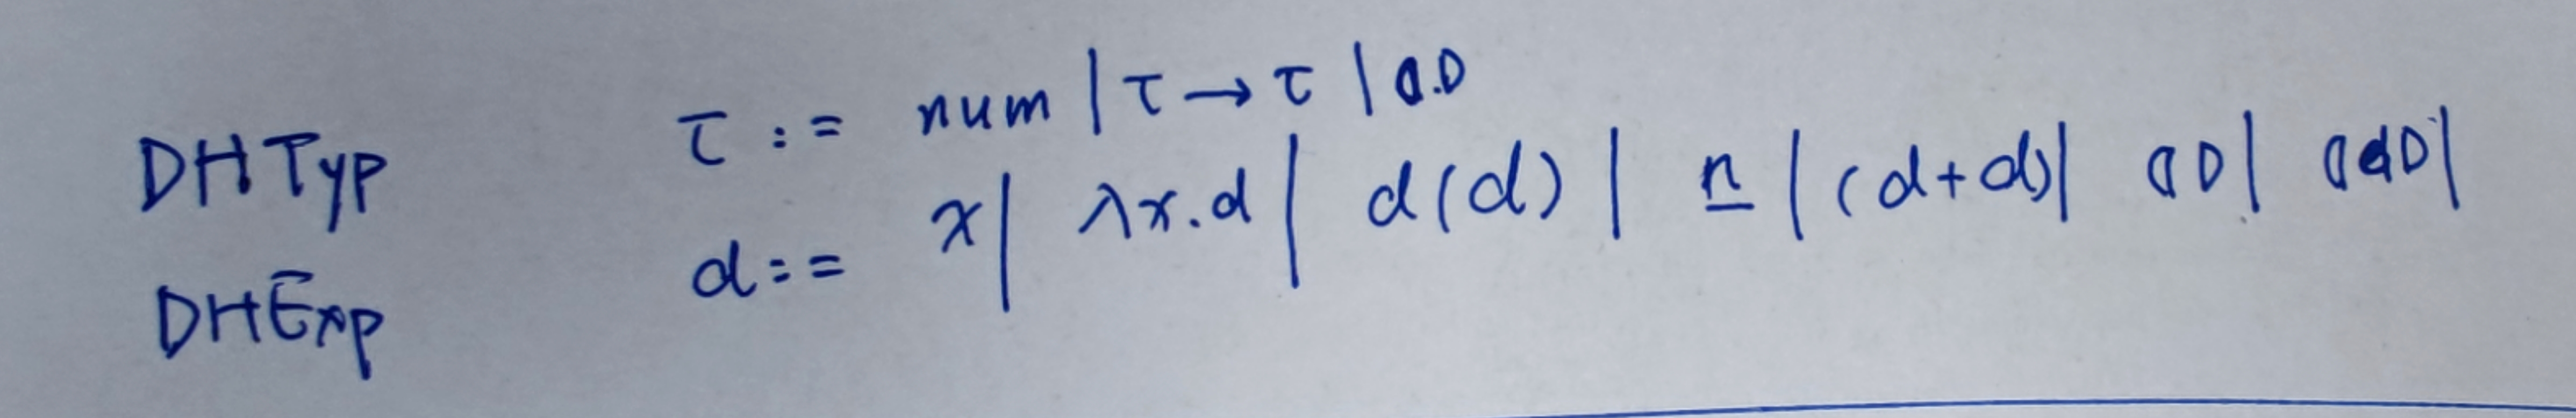 DHTyp τ := num | τ → τ | ⦇⦈
DHExp d := x | λx.d | d(d) | n | (d+d) | ⦇⦈ | ⦇d⦈ |